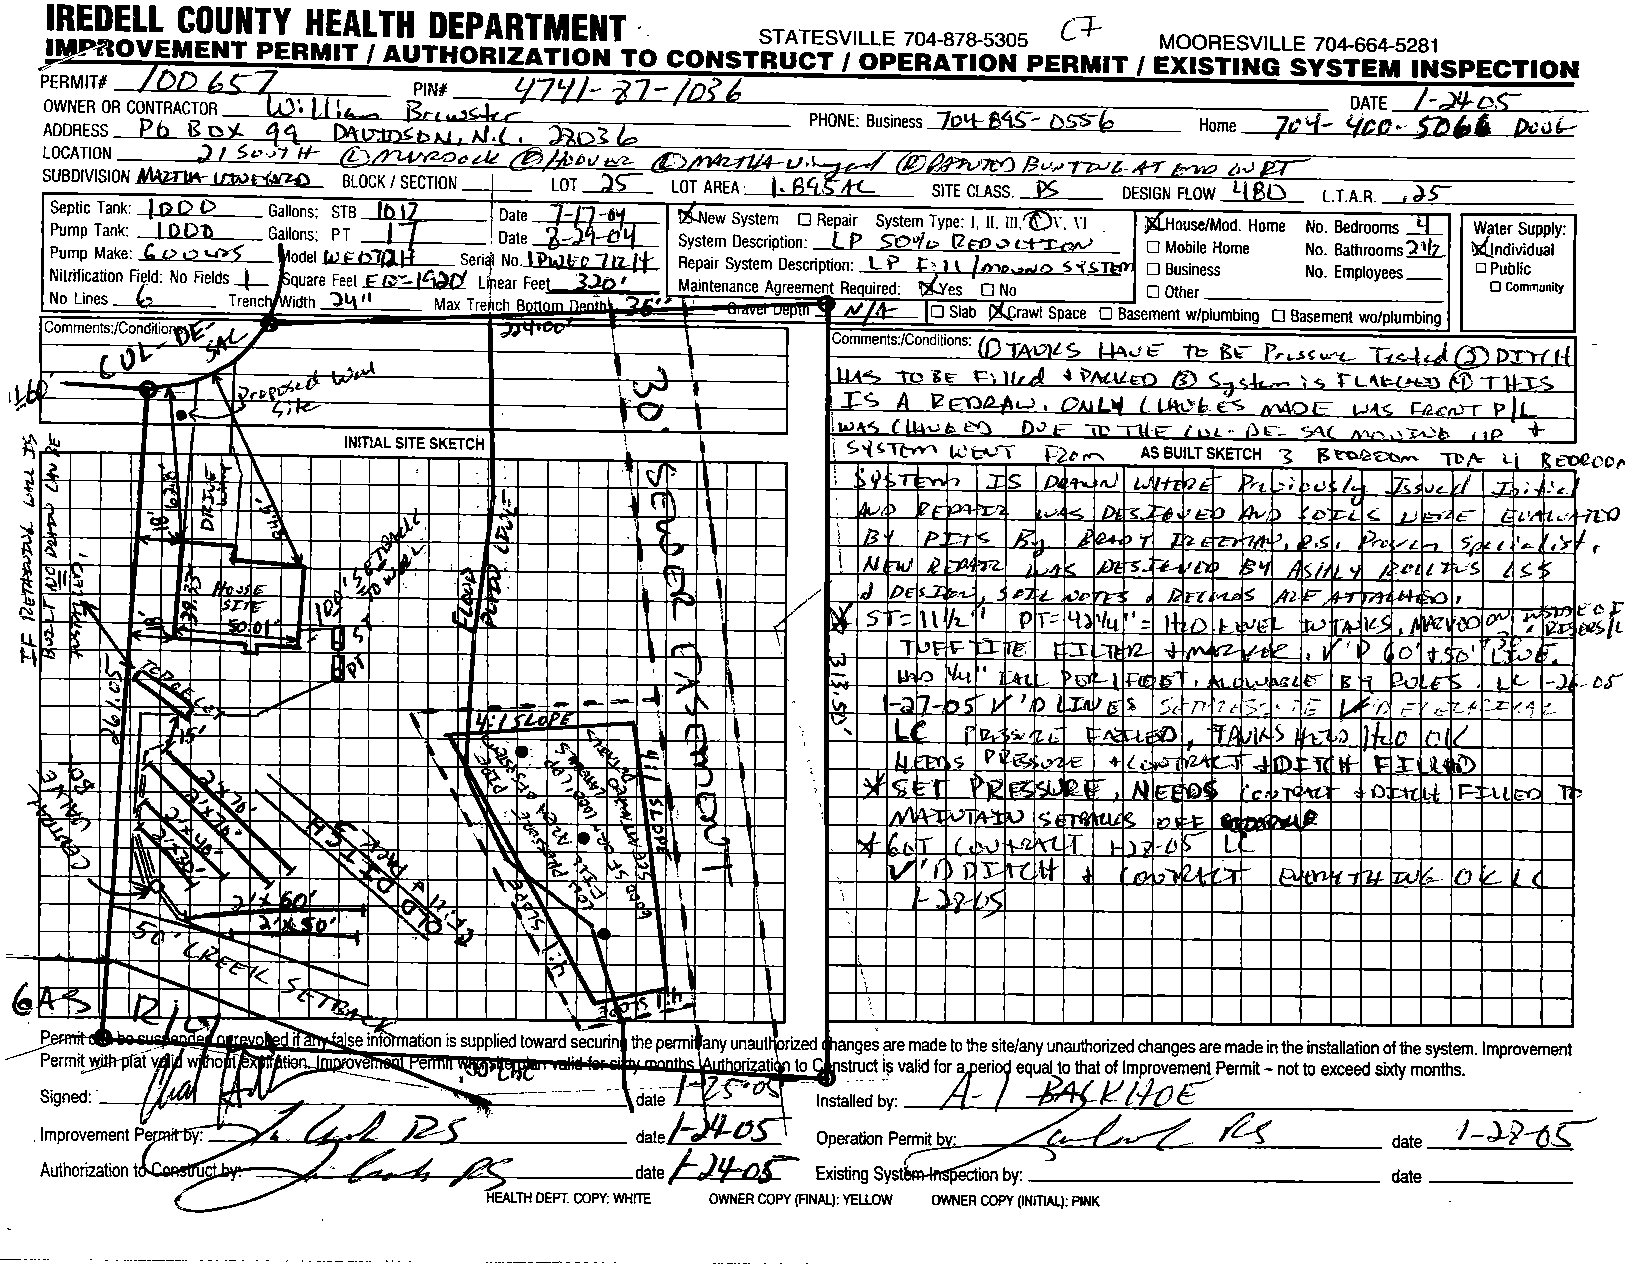 IREDELL COUNTY HEALTH DEPARTMENT STATESVILLE 704-878-5305 C7 MOORESVILLE 704-664-5281
IMPROVEMENT PERMIT / AUTHORIZATION TO CONSTRUCT / OPERATION PERMIT / EXISTING SYSTEM INSPECTION
PERMIT# 100657 PIN# 4741-87-1036 DATE 1-24-05
OWNER OR CONTRACTOR William Brewster PHONE: Business 704-895-0556 Home 704-400-5066 DOUG
ADDRESS PO BOX 99 DAVIDSON, N.C. 28036
LOCATION 21 SOUTH (L) MURDOCK (R) HOOVER (L) MARTHA Vineyard (R) PAINTED BUNTING AT END ON RT
SUBDIVISION MARTHA VINEYARD BLOCK / SECTION LOT 25 LOT AREA: 1.895 AC SITE CLASS. PS DESIGN FLOW 480 L.T.A.R. .25
Septic Tank: 1000 Gallons: STB 1017 Date 7-17-04
Pump Tank: 1000 Gallons: PT 17 Date 8-29-04
Pump Make: GOULDS Model WE0712H Serial No. 1PWE0712H
Nitrification Field: No Fields 1 Square Feet EQ=1920 Linear Feet 320'
No Lines 6 Trench Width 24" Max Trench Bottom Depth 36" Gravel Depth N/A
New System Repair System Type: I, II, III, IV, V, VI
System Description: LP 50% REDUCTION
Repair System Description: LP Fill / MOUND SYSTEM
Maintenance Agreement Required: Yes No
House/Mod. Home No. Bedrooms 4
Mobile Home No. Bathrooms 2 1/2
Business No. Employees
Other
Water Supply:
Individual
Public
Community
Slab Crawl Space Basement w/plumbing Basement wo/plumbing
Comments:/Conditions:
CUL-DE-SAC
224.00'
160'
Proposed Well Site
INITIAL SITE SKETCH
30'
SEWER EASEMENT
IF RETAINING WALL IS
BUILT NO DRAIN CAN BE
DRIVE WAY
HOUSE SITE
50.01'
39.33'
18'
18'
100' SETBACK TO WELL
ST
PT
15'
2'x70'
2'x60'
2'x50'
OLD DITCH
Fill & PACK
50' CREEK SETBACK
4:1 SLOPE
4:1 SLOPE
4:1 SLOPE
4:1 SLOPE
313.50'
GAS R/W
Comments:/Conditions: (1) TANKS HAVE TO BE Pressure Tested (2) DITCH
HAS TO BE Filled & PACKED (3) System is FLAGGED (4) THIS
IS A REDRAW. ONLY CHANGES MADE WAS FRONT P/L
WAS CHANGED DUE TO THE CUL-DE-SAC MOVING UP &
SYSTEM WENT From AS BUILT SKETCH 3 BEDROOM TO A 4 BEDROOM
SYSTEM IS DRAWN WHERE Previously Issued Initial
AND REPAIR WAS DESIGNED AND SOILS WERE EVALUATED
BY PITS By BRADY FREEMAN, R.S. Program Specialist.
NEW REPAIR WAS DESIGNED BY ASHLY ROLLINS LSS
& DESIGN, SOIL NOTES & RECORDS ARE ATTACHED.
* ST = 11 1/2" PT = 42 1/4" = H2O LEVEL IN TANKS, MARKED ON INSIDE OF RISERS/L
TUFF TITE FILTER & MARKER. V'D 60' & 50' LINE.
HAD 1/4" FALL PER 1 FOOT, ALLOWABLE BY RULES. LC 1-26-05
1-27-05 V'D LINES V'D ELECTRICAL
LC PRESSURE FAILED, TANKS HELD H2O OK
NEEDS PRESSURE & CONTRACT & DITCH FILLED
* SET PRESSURE, NEEDS CONTRACT & DITCH FILLED TO
MAINTAIN SETBACKS OFF
* GOT CONTRACT 1-28-05 LC
V'D DITCH & CONTRACT EVERYTHING OK LC
1-28-05
Permit can be suspended or revoked if any false information is supplied toward securing the permit/any unauthorized changes are made to the site/any unauthorized changes are made in the installation of the system. Improvement
Permit with plat valid without expiration. Improvement Permit with site plan valid for sixty months. Authorization to Construct is valid for a period equal to that of Improvement Permit – not to exceed sixty months.
Signed: date 1-25-05 Installed by: A-1 BACKHOE
Improvement Permit by: RS date 1-24-05 Operation Permit by: RS date 1-28-05
Authorization to Construct by: RS date 1-24-05 Existing System Inspection by: date
HEALTH DEPT. COPY: WHITE OWNER COPY (FINAL): YELLOW OWNER COPY (INITIAL): PINK